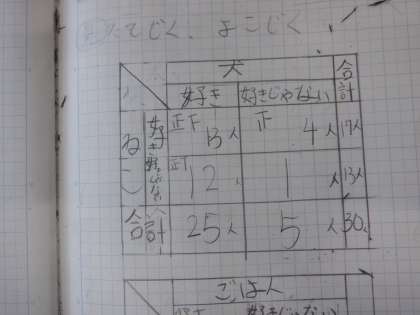 たてじく、よこじく
犬 合計
好き 好きじゃない
ねこ 好き 正下 13人 正 4人 17人
好きじゃない 正丅 12人 1人 13人
合計 25人 5人 30人
ごはん
好き 好きじゃない